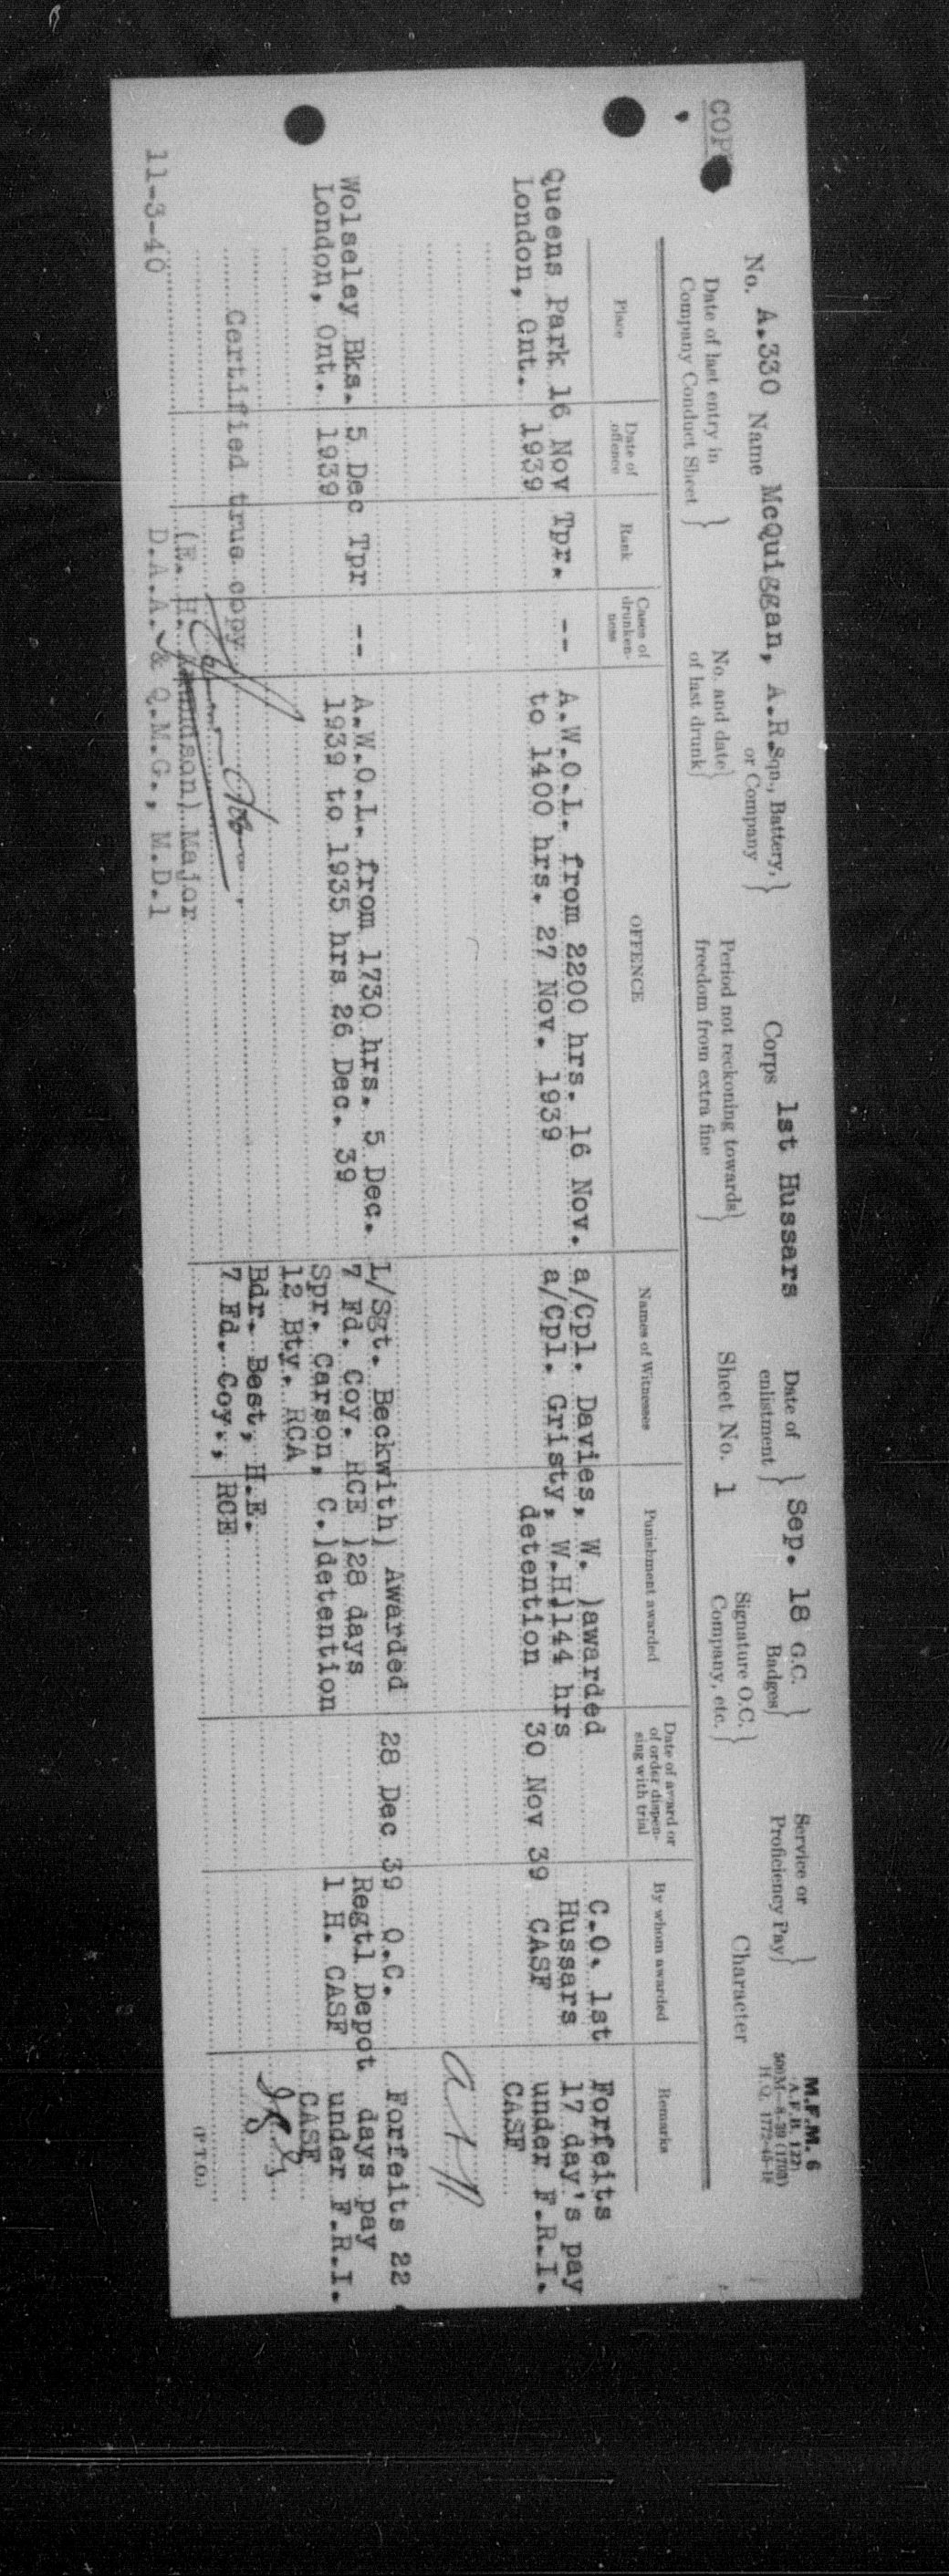 COP
M.F.M. 6
A.F.B. 122)
500M-8-39 (1708)
H.Q. 1772-45-18
No. A.330 Name McQuiggan, A.R. Sqn., Battery, or Company } Corps 1st Hussars Date of enlistment } Sep. 18 G.C. Badges } Service or Proficiency Pay }
Date of last entry in Company Conduct Sheet } No. and date of last drunk } Period not reckoning towards freedom from extra fine } Sheet No. 1 Signature O.C. Company, etc. } Character
Place Date of offence Rank Cases of drunken-ness OFFENCE Names of Witnesses Punishment awarded Date of award or of order dispen-sing with trial By whom awarded Remarks
Queens Park 16 Nov Tpr. -- A.W.O.L. from 2200 hrs. 16 Nov. a/Cpl. Davies, W. )awarded C.O. 1st Forfeits
London, Ont. 1939 to 1400 hrs. 27 Nov. 1939 a/Cpl. Gristy, W.H)144 hrs Hussars 17 day's pay
detention 30 Nov 39 CASF under F.R.I.
CASF
Wolseley Bks. 5 Dec Tpr -- A.W.O.L. from 1730 hrs. 5 Dec. L/Sgt. Beckwith) Awarded 28 Dec 39 O.C. Forfeits 22
London, Ont. 1939 1939 to 1935 hrs 26 Dec. 39 7 Fd. Coy. RCE )28 days Regtl Depot days pay
Spr. Carson, C.)detention 1 H. CASF under F.R.I.
12 Bty. RCA CASF
Bdr. Best, H.E.
7 Fd. Coy., RCE
Certified true copy
(E. H. Major
11-3-40 D.A.A. & Q.M.G., M.D.1
(P.T.O.)